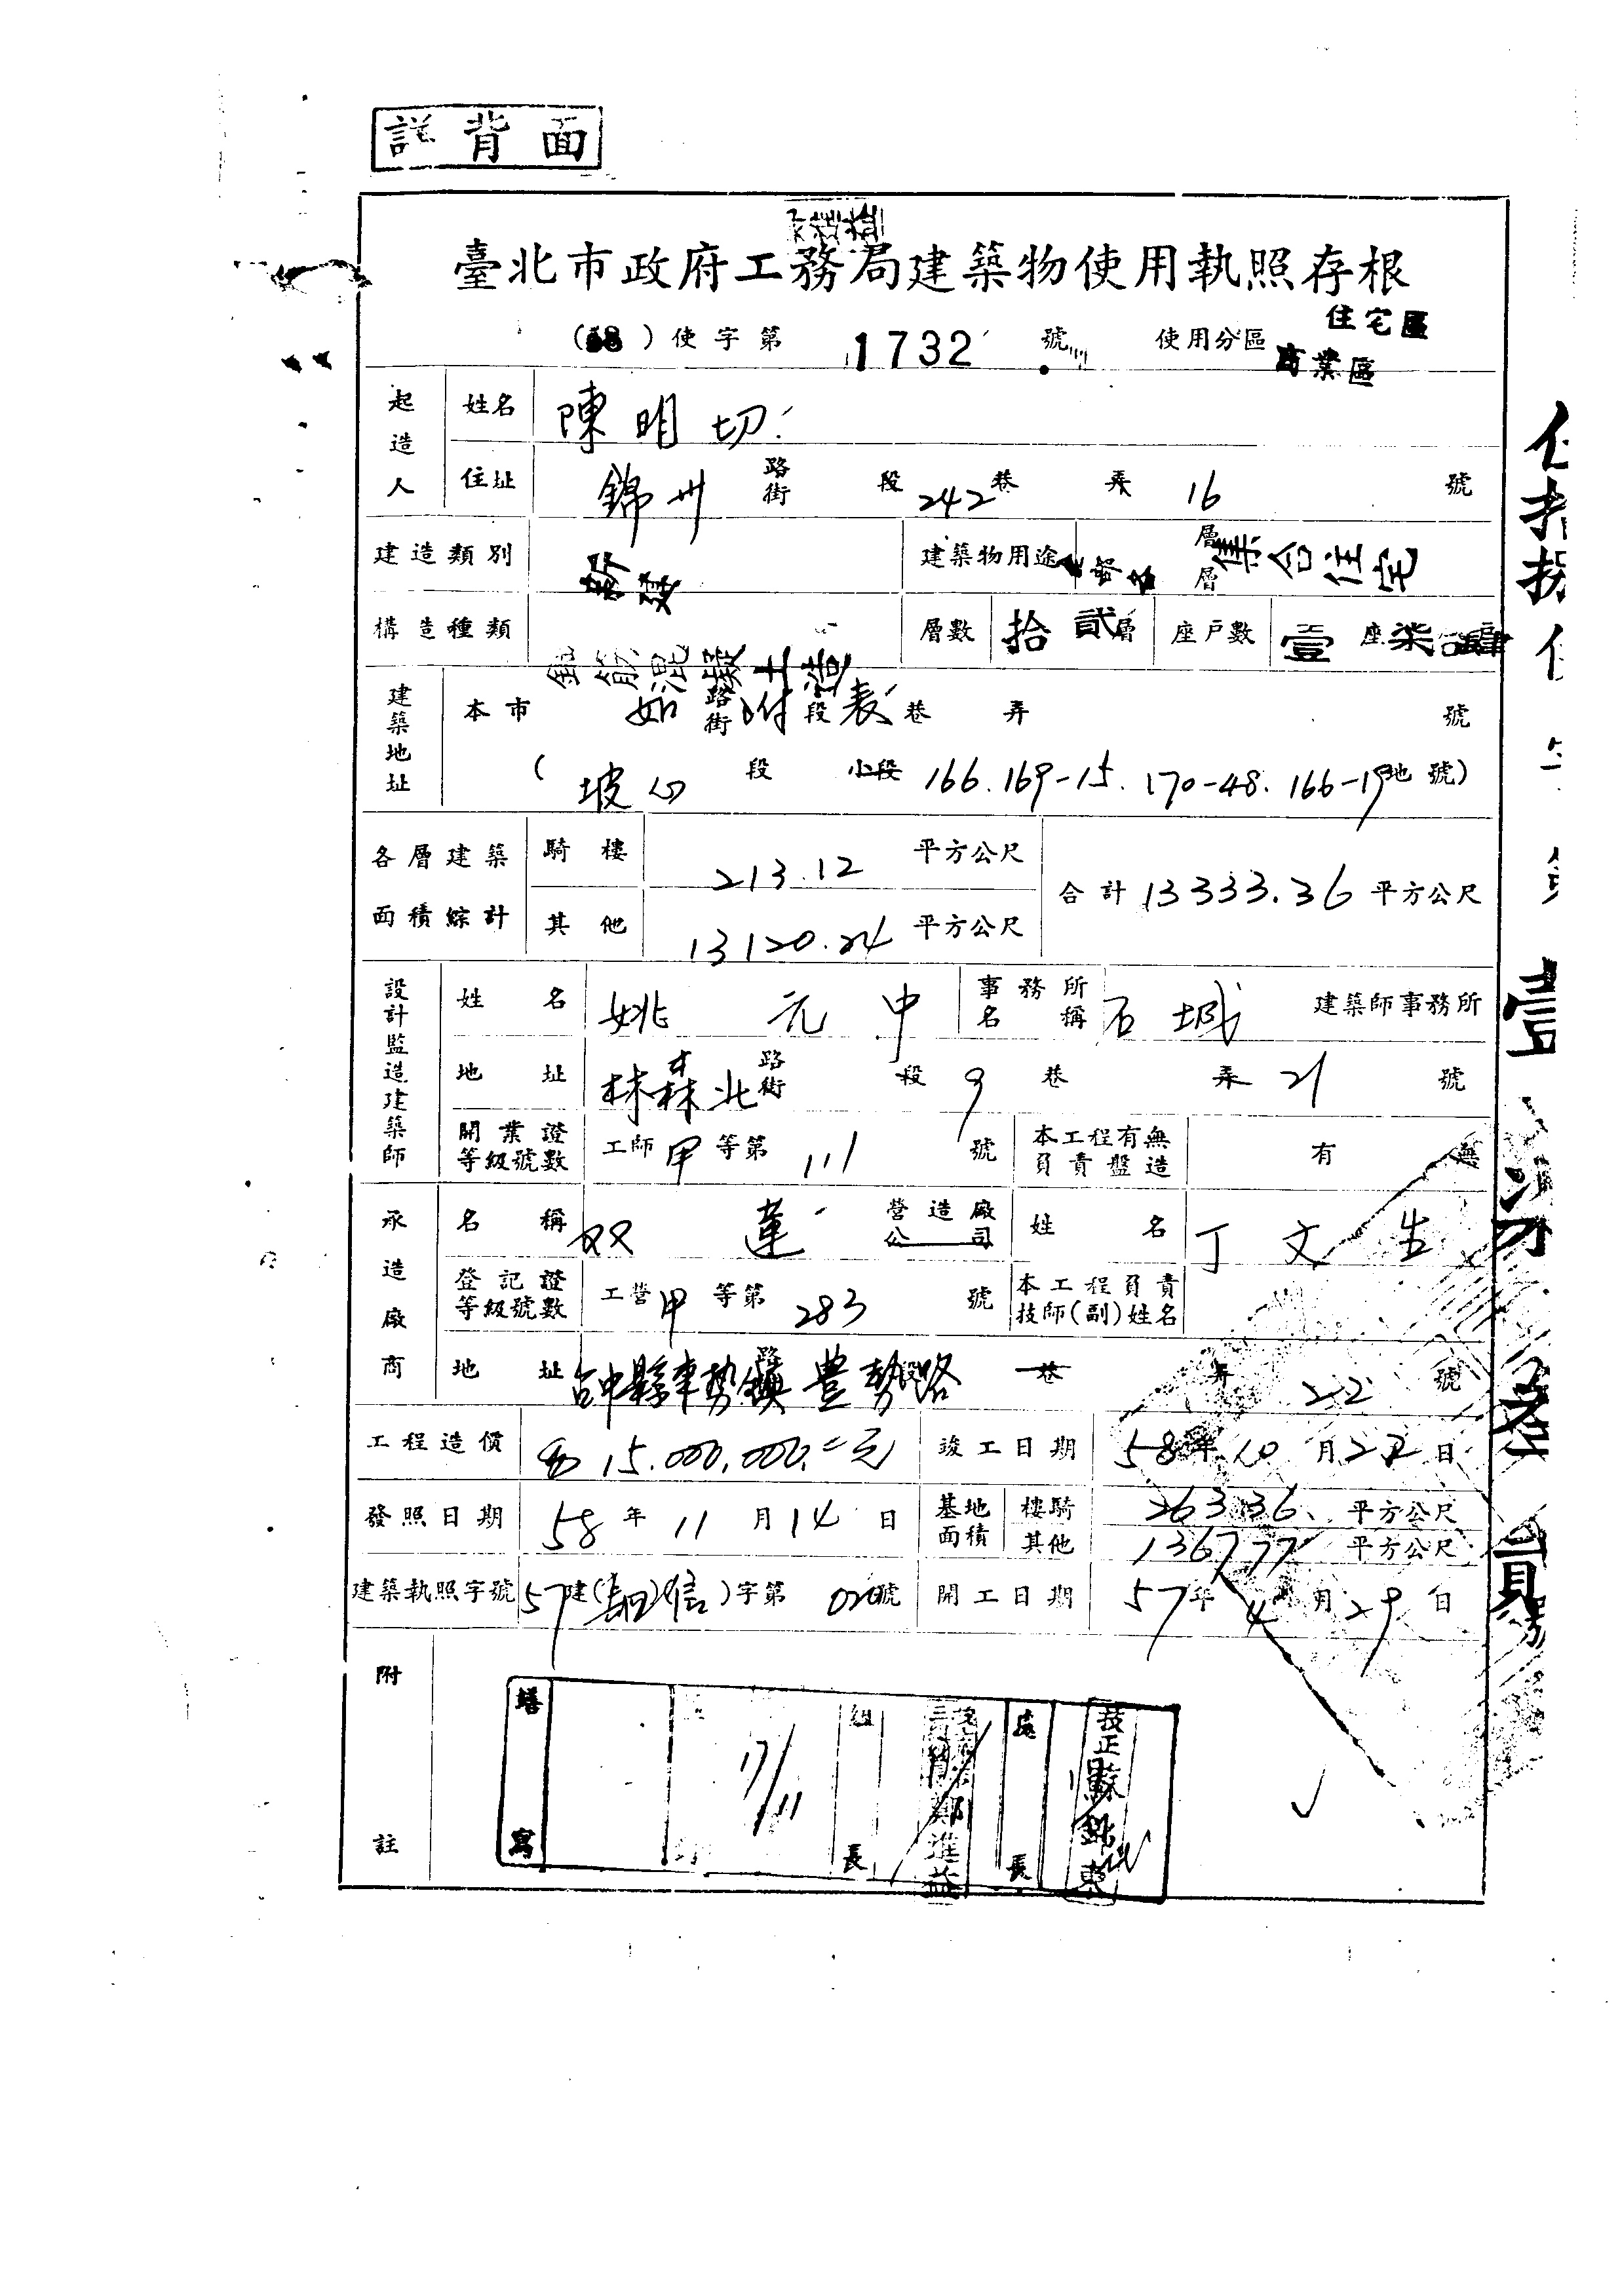 詳背面
臺北市政府工務局建築物使用執照存根
(58)使字第 1732 號 使用分區 住宅區
商業區
起造人 姓名 陳明切
住址 錦州 路街 段 242 巷 弄 16 號
建造類別 新建 建築物用途 全部各 層層 集合住宅
構造種類 鋼筋混凝土造 層數 拾貳層 座戶數 壹座柒拾肆
建築地址 本市 如 路街 附 段 表 巷 弄 號
( 坡心 段 小段 166.169-15.170-48.166-19 地號)
各層建築面積綜計 騎樓 213.12 平方公尺 合計 13333.36 平方公尺
其他 13120.24 平方公尺
設計監造建築師 姓名 姚元中 事務所名稱 石城 建築師事務所
地址 林森北 路街 段 9 巷 弄 21 號
開業證等級號數 工師甲等第 111 號 本工程有無負責監造 有 無
承造廠商 名稱 双蓮 營造廠公司 姓名 丁文生
登記證等級號數 工營甲等第 283 號 本工程負責技師(副)姓名
地址 台中縣東勢鎮豊勢路 巷 弄 22 號
工程造價 15.000,000.元 竣工日期 58年10月22日
發照日期 58年11月14日 基地面積 樓騎 263.36 平方公尺
其他 1367.77 平方公尺
建築執照字號 57建( )(信)字第 020號 開工日期 57年4月29日
附註
繕寫 17/11 組長 鄭進益 處長 技正蘇銘東